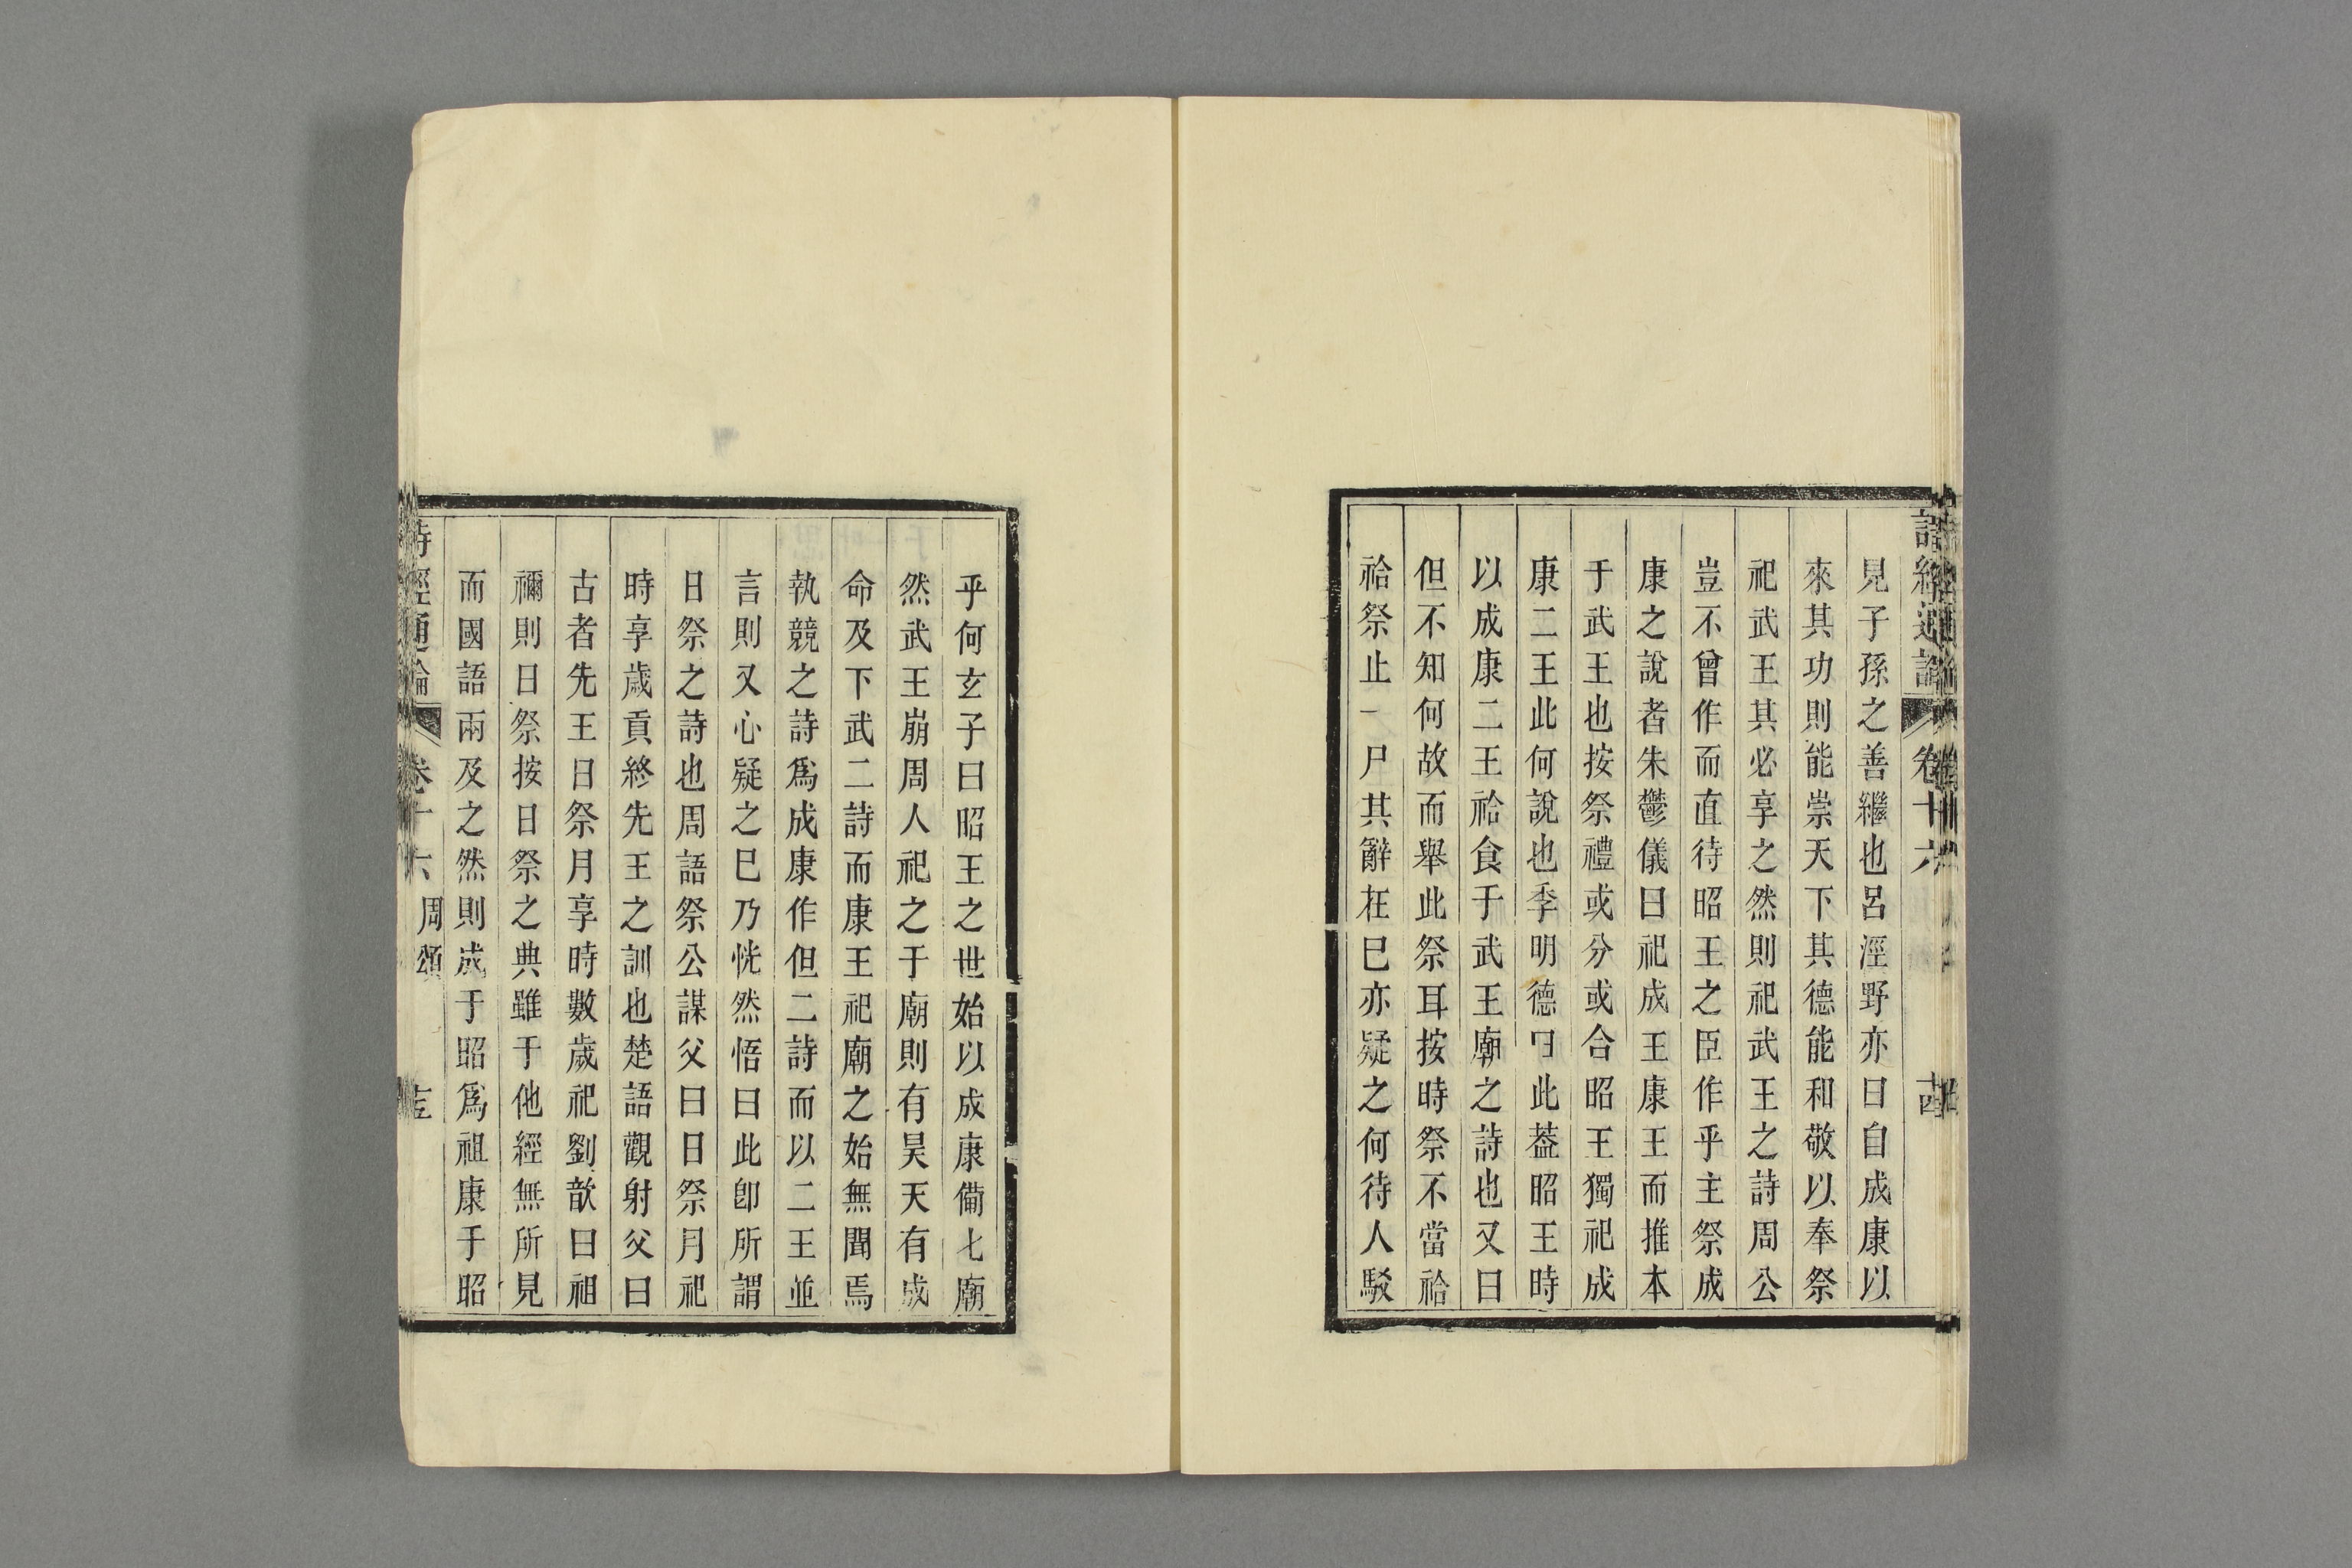 詩經通論 卷十六 十四
見子孫之善繼也呂涇野亦曰自成康以
來其功則能崇天下其德能和敬以奉祭
祀武王其必享之然則祀武王之詩周公
豈不曾作而直待昭王之臣作乎主祭成
康之說者朱鬱儀曰祀成王康王而推本
于武王也按祭禮或分或合昭王獨祀成
康二王此何說也季明德曰此葢昭王時
以成康二王祫食于武王廟之詩也又曰
但不知何故而舉此祭耳按時祭不當祫
祫祭止一尸其辭在巳亦疑之何待人駁
乎何玄子曰昭王之世始以成康備七廟
然武王崩周人祀之于廟則有昊天有成
命及下武二詩而康王祀廟之始無聞焉
執競之詩爲成康作但二詩而以二王並
言則又心疑之巳乃恍然悟曰此卽所謂
日祭之詩也周語祭公謀父曰日祭月祀
時享歲貢終先王之訓也楚語觀射父曰
古者先王日祭月享時數歲祀劉歆曰祖
禰則日祭按日祭之典雖于他經無所見
而國語兩及之然則成于昭爲祖康于昭
詩經通論 卷十六 周頌 十五